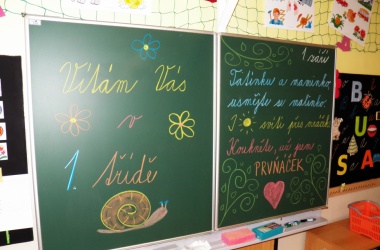 Vítám Vás
v
1. třídě
1. září
Tatínku a maminko,
usmějte se malinko.
I slunce svítí přes mráček
Koukněte, už jsem
PRVŇÁČEK
B
U
S
A